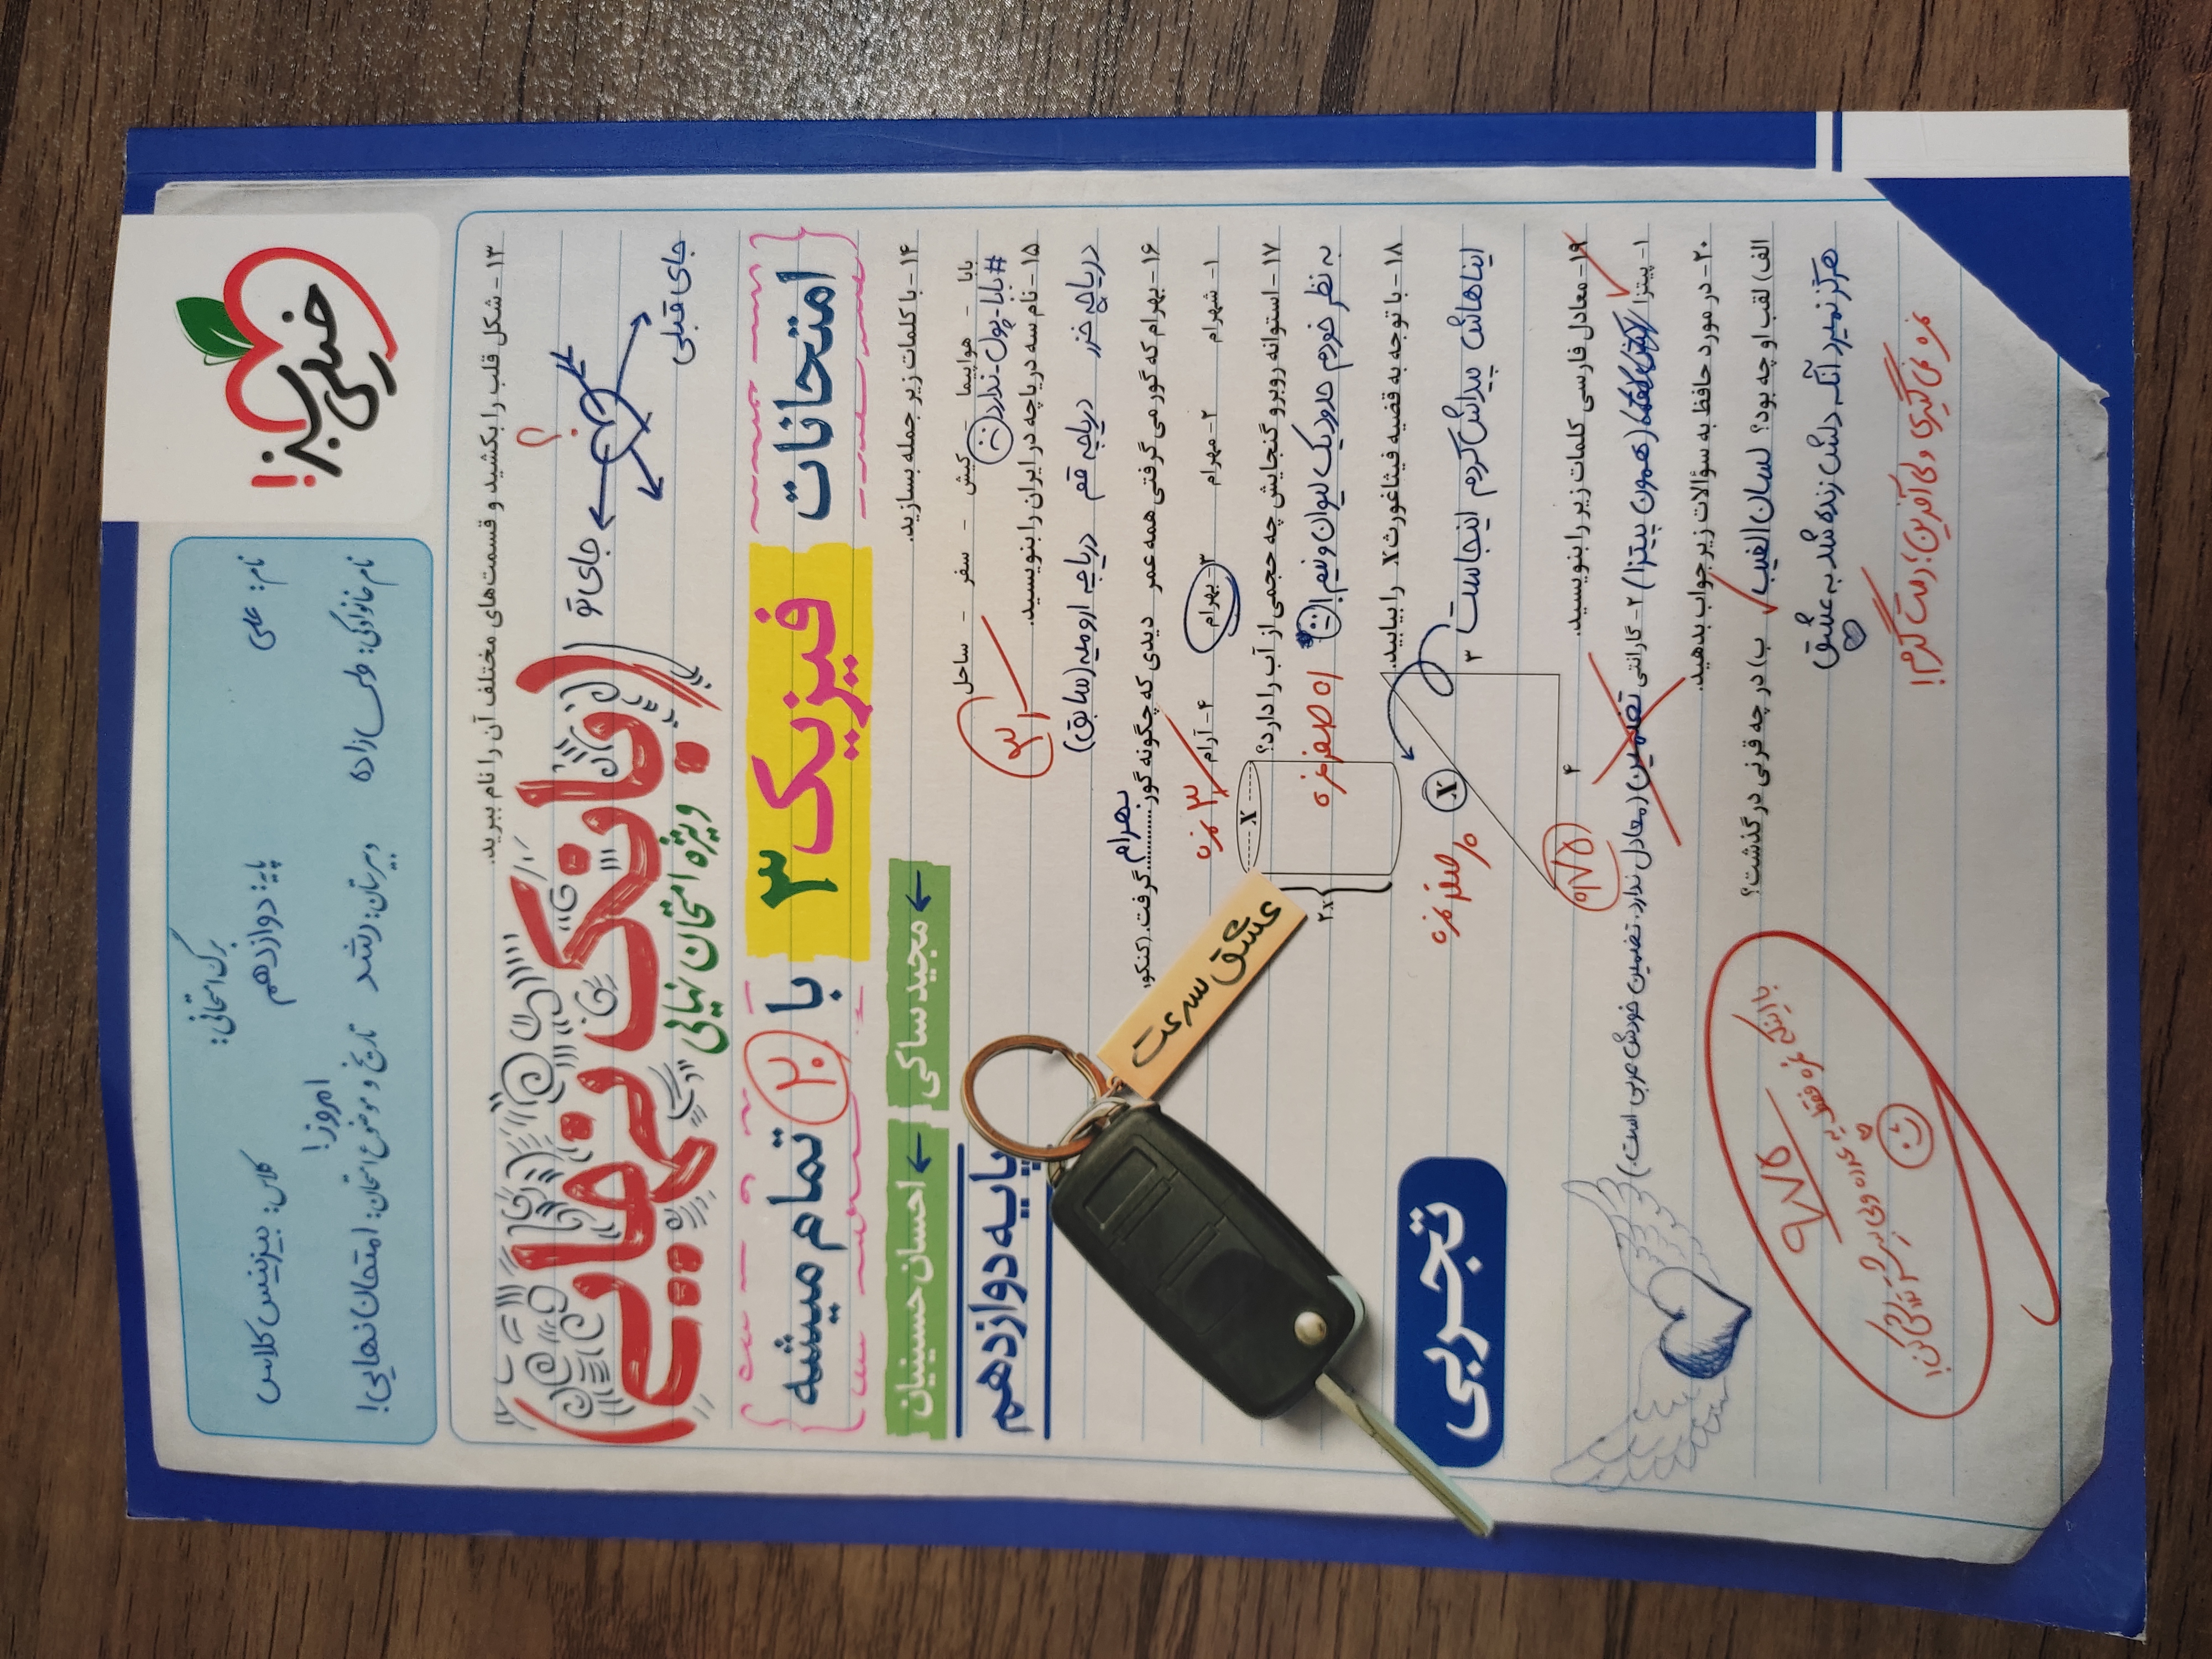 خیلی سبز!
برگ امتحانی:
نام: علی
پایه: دوازدهم
کلاس: بیزینس کلاس
نام خانوادگی: طوسی زاده
دبیرستان: رشد
تاریخ و موضوع امتحان: امتحان نهایی!
امروز!
۱۳- شکل قلب را بکشید و قسمت‌های مختلف آن را نام ببرید.
جای تو
جای قبلی
؟
(بانک نهایی)
ویژه امتحان نهایی
امتحانات
فیزیک ۳
با ۲۰ تمام میشه
۱۴- با کلمات زیر جمله بسازید.
احسان حسینیان ← مجید ساکی ←
بابا - هواپیما - کیش - سفر - ساحل
#بابا-پول-ندارد
پایه دوازدهم
۱۵- نام سه دریاچه در ایران را بنویسید.
دریاچه خزر دریاچه قم دریاچه ارومیه (سابق)
۱۶- بهرام که گور می گرفتی همه عمر دیدی که چگونه گور بهرام گرفت. (کنکور
۱- شهرام ۲- مهرام ۳- بهرام ۴- آرام
۳ نمره
۱۷- استوانه روبرو گنجایش چه حجمی از آب را دارد؟
به نظر خودم حدود یک لیوان و نیم!
صفر نمره
x
۲x
عشق سرعت
۱۸- با توجه به قضیه فیثاغورث X را بیابید.
ایناهاش پیداش کردم اینجاست
صفر نمره
X
۳
۴
تجربی
۱۹- معادل فارسی کلمات زیر را بنویسید.
۰/۷۵
۱- پیتزا (همون پیتزا) ۲- گارانتی تضمین (معادل ندارد. تضمین خودش عربی است.)
۲۰- در مورد حافظ به سؤالات زیر جواب بدهید.
الف) لقب او چه بود؟ لسان الغیب ب) در چه قرنی درگذشت؟
هرگز نمیرد آنکه دلش زنده شد به عشق
نمره نمی گیری ولی آفرین؛ دمت گرم!